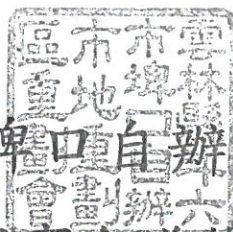 雲林縣斗六
市埤口自辦
市地重劃
區重劃會
埤口自辦